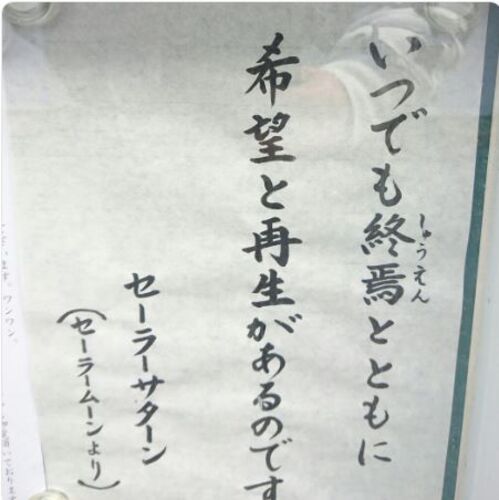 いつでも終焉とともに
しゅうえん
希望と再生があるのです
セーラーサターン
（セーラームーンより）
います。ワンワン。